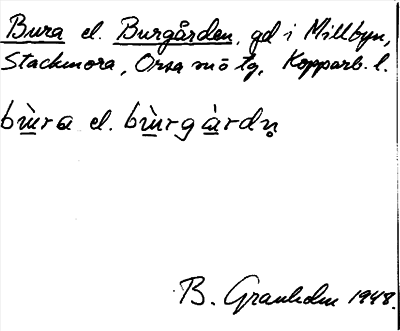 Bura el. Burgården, gd i Millbyn,
Stackmora, Orsa sn o tg, Kopparb. l.
bùra el. bùrgàrdn̥
B. Granholm 1948.